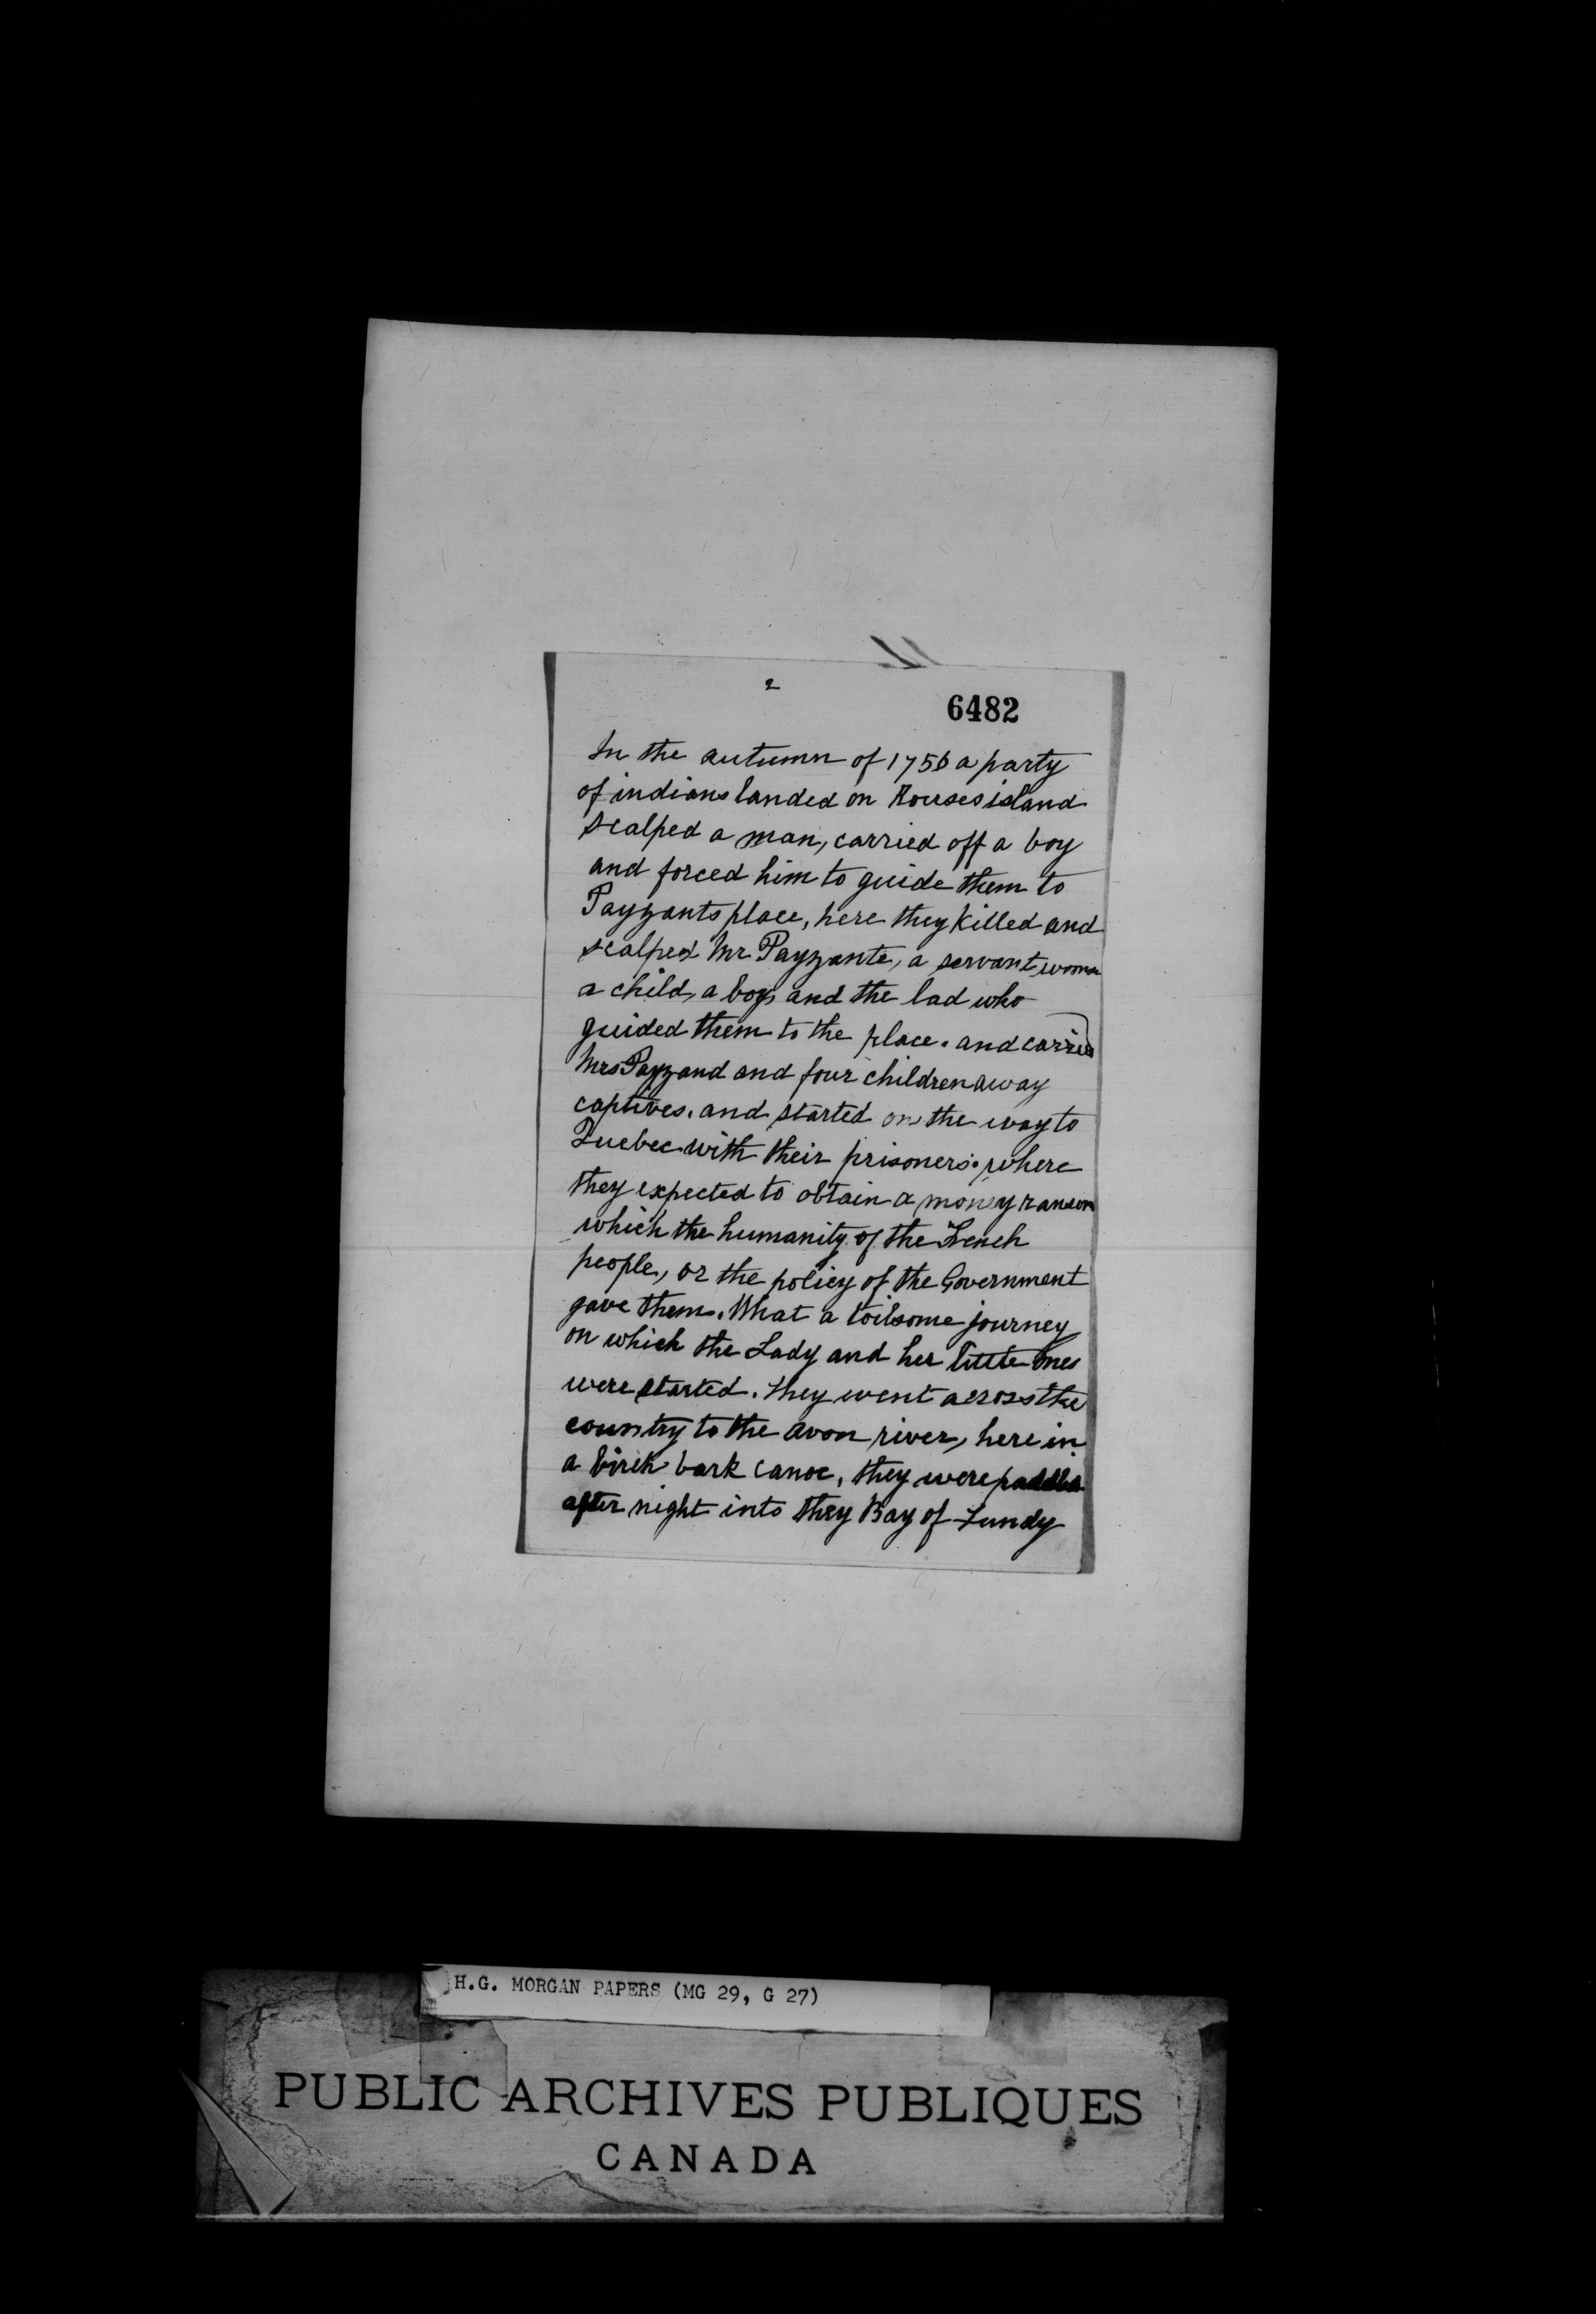 2
6482
In the autumn of 1756 a party
of indians landed on Rouses island
scalped a man, carried off a boy
and forced him to guide them to
Payzants place, here they killed and
scalped Mr. Payzante, a servant woman
a child, a boy, and the lad who
guided them to the place. and carried
Mrs Payzand and four children away
captives. and started on the way to
Quebec with their prisoners. where
they expected to obtain a money ransom
which the humanity of the French
people, or the policy of the Government
gave them. What a toilsome journey
on which the Lady and her little ones
were started. they went across the
country to the avon river, here in
a birch bark canoe, they were paddled
after night into they Bay of Fundy
H.G. MORGAN PAPERS (MG 29, G 27)
PUBLIC ARCHIVES PUBLIQUES
CANADA